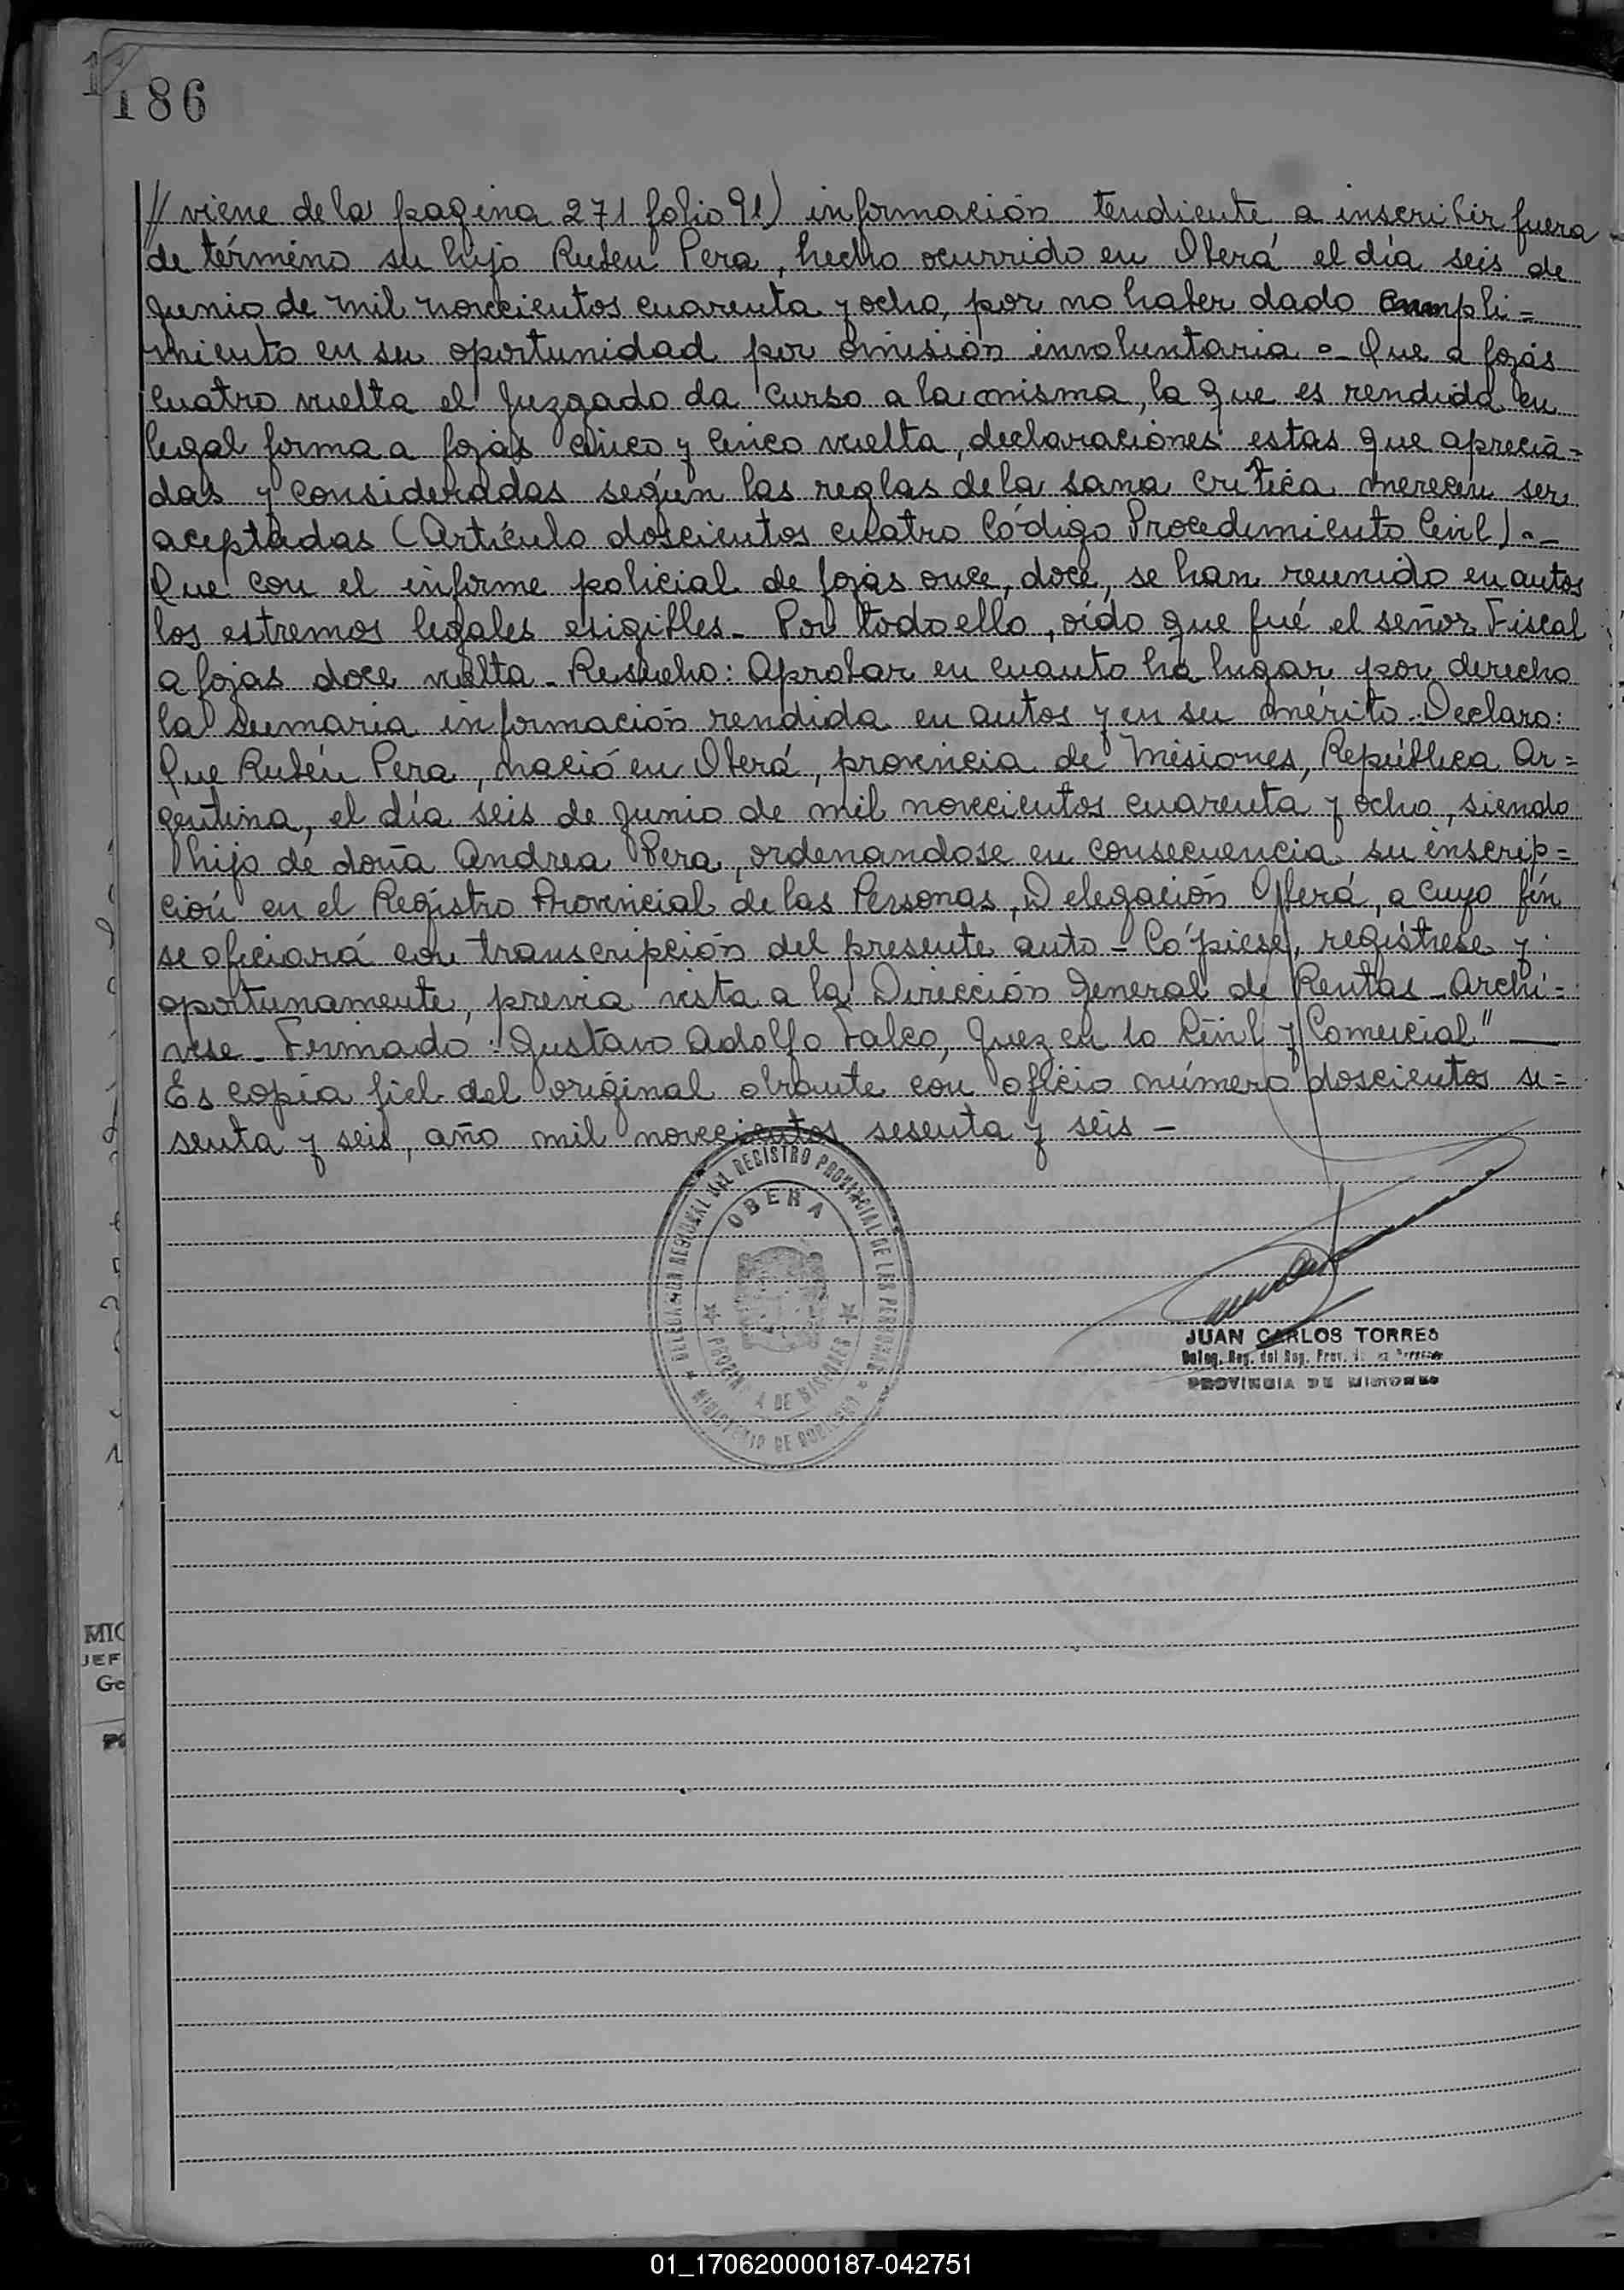 186
// viene de la pagina 271 folio 91) información tendiente a inscribir fuera
de término su hijo Ruben Pera, hecho ocurrido en Oberá el día seis de
junio de mil novecientos cuarenta y ocho, por no haber dado cumpli=
miento en su oportunidad por omisión involuntaria.- Que a fojas
cuatro vuelta el Juzgado da curso a la misma, la que es rendida en
legal forma a fojas cinco y cinco vuelta, declaraciones estas que aprecia=
das y consideradas según las reglas de la sana crítica merecen ser
aceptadas (Artículo doscientos cuatro Código Procedimiento Civil).-
Que con el informe policial de fojas once, doce, se han reunido en autos
los estremos legales exigibles- Por todo ello, oído que fué el señor Fiscal
a fojas doce vuelta- Resuelvo: Aprobar en cuanto ha lugar por derecho
la sumaria información rendida en autos y en su mérito- Declaro:
Que Rubén Pera, nació en Oberá, provincia de Misiones, República Ar=
gentina, el día seis de junio de mil novecientos cuarenta y ocho, siendo
hijo de doña Andrea Pera, ordenandose en consecuencia su inscrip=
ción en el Registro Provincial de las Personas, Delegación Oberá, a cuyo fin
se oficiará con transcripción del presente auto- Cópiese, regístrese y
oportunamente, previa vista a la Dirección General de Rentas- Archí=
vese- Firmado: Gustavo Adolfo Falco, Juez en lo Civil y Comercial" —
Es copia fiel del original obrante con oficio número doscientos se=
senta y seis, año mil novecientos sesenta y seis-
DELEGACION REGIONAL DEL REGISTRO PROVINCIAL DE LAS PERSONAS
OBERA
PROVINCIA DE MISIONES
MINISTERIO DE GOBIERNO
JUAN CARLOS TORRES
Deleg. Reg. del Reg. Prov. de las Personas
PROVINCIA DE MISIONES
MIG
JEF
Ge
01_170620000187-042751